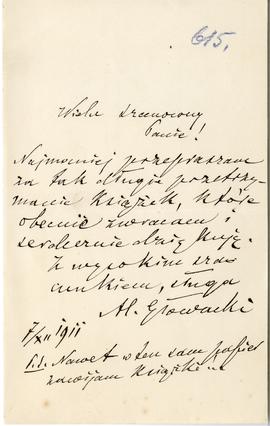 615.
Wielce szanowny
Panie!
Najmocniej przepraszam
za tak długie przetrzy-
manie książek, które
obecnie zwracam i
serdecznie dziękuję.
Z wysokim sza-
cunkiem, sługa
Al. Głowacki
7/XII 1911
P.S. Nawet w ten sam papier
zawijam książki